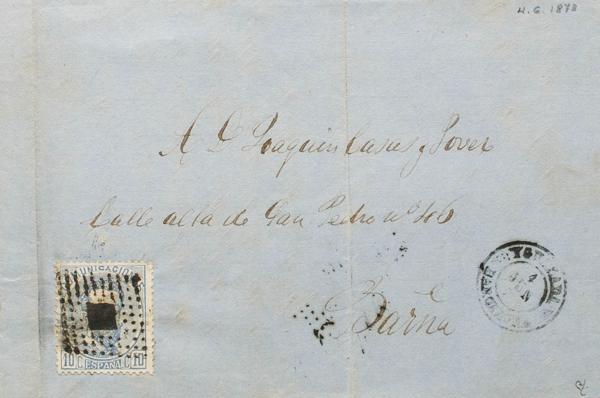 4.6.1873
A D. Joaquin Casas y Jover
Calle alta de San Pedro nº 46
Barna
COMUNICACIONES
10 C. ESPAÑA C. 10
4
JUN